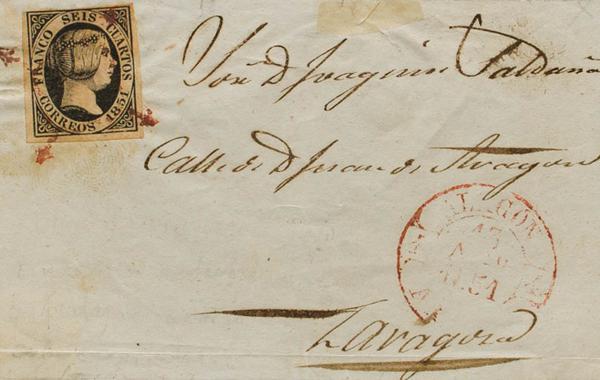 FRANCO SEIS CUARTOS
CORREOS 1851
Sor. D Joaquin Saldaña
Calle de D Juan de Aragon
ALAGON
1851
Zaragoza